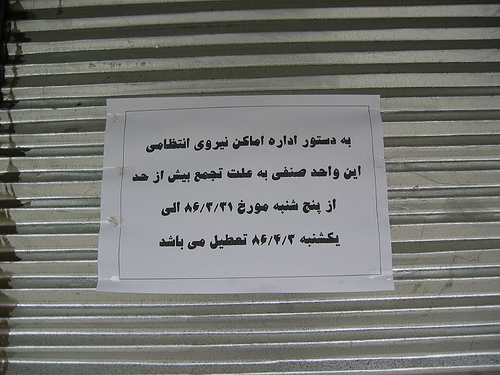 به دستور اداره اماکن نیروی انتظامی
این واحد صنفی به علت تجمع بیش از حد
از پنج شنبه مورخ ۸۶/۳/۳۱ الی
یکشنبه ۸۶/۴/۳ تعطیل می باشد